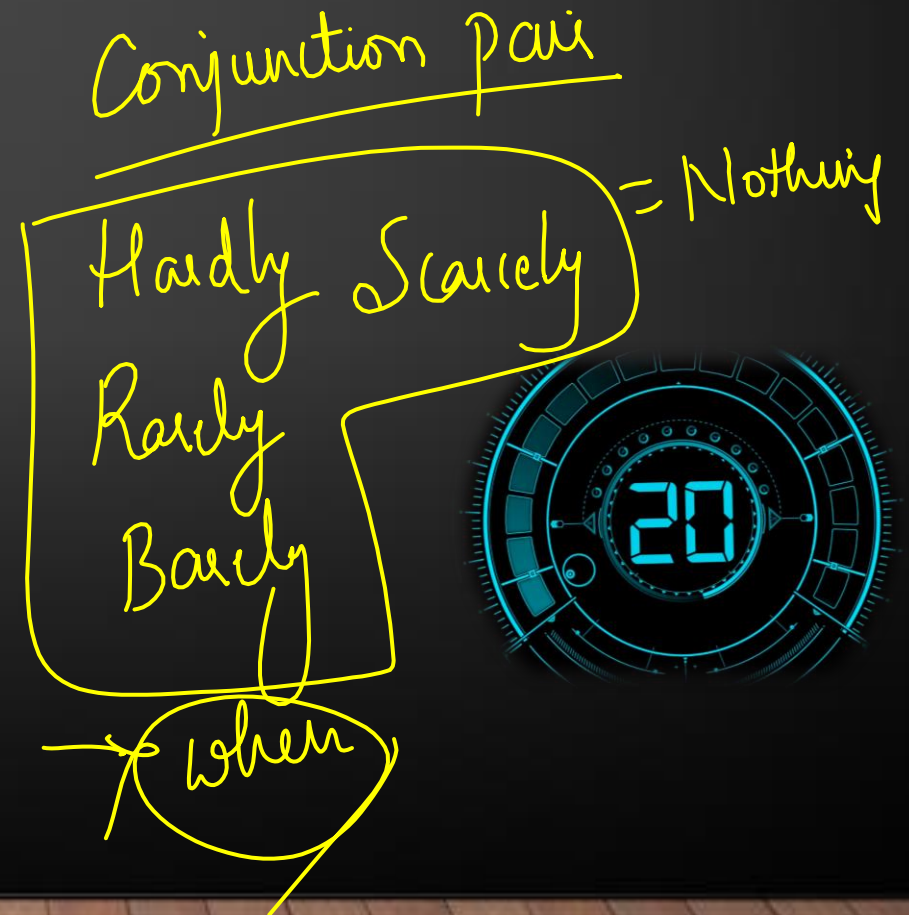 Conjunction pair
Hardly Scarcely = Nothing
Rarely
Barely
when
20